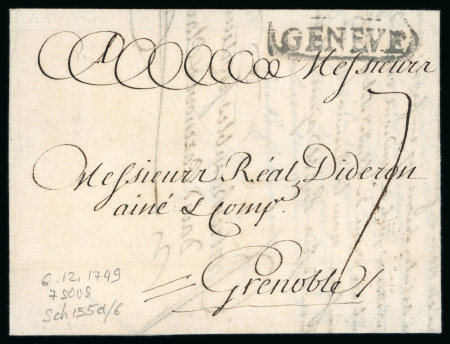 GENEVE
A Messieurs
Messieurs Réal Dideron
ainé & Comp.
7
Grenoble
6.12.1749
7 sous
Sch 155d/6